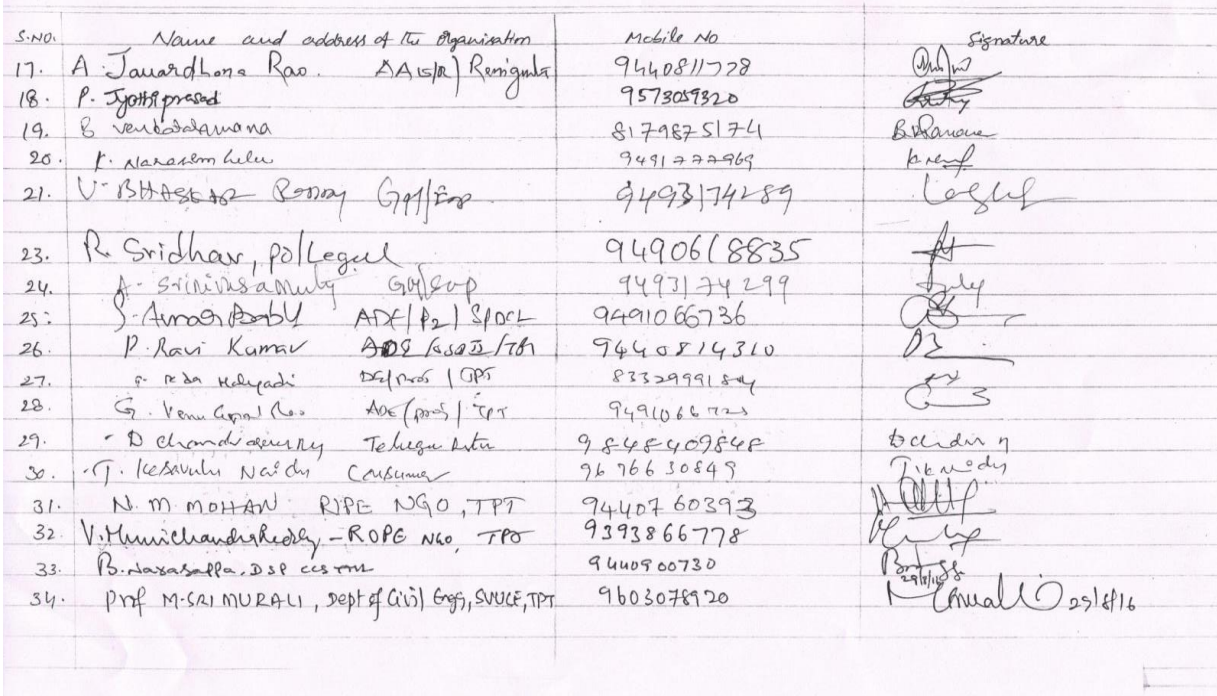 S.NO. Name and address of the Organisation Mobile No Signature
17. A. Janardhana Rao. AA(S/R) Renigunta 9440811778
18. P. Jyothi prasad 9573059320
19. B Venkataramana 8179875174 B.V.Ramana
20. K. Narasimhulu 9491777969
21. V. BHASKAR Reddy GM/Exp 9493174289
23. R. Sridhar, PO/Legal 9490618835
24. A. Srinivasamurty GM/Exp 9493174299
25: S. Amar Babu ADE/P2/SPDCL 9491066736
26. P. Ravi Kumar 9440814310
27. DE/ /TPT
28. G. Venu Gopal Rao ADE/ /TPT 9491066723
29. - D Telugu 9848409848
30. T. Kesavulu Naidu Consumer 9676630849
31. N. M. MOHAN RIPE NGO, TPT 9440760393
32. V. Munichandra Reddy - ROPE NGO, TPT 9393866778
33. B. Narasappa, DSP CCS TPT 9440900730
34. Prof M. SRI MURALI, Dept of Civil Engg, SVUCE, TPT 9603078920 29/8/16